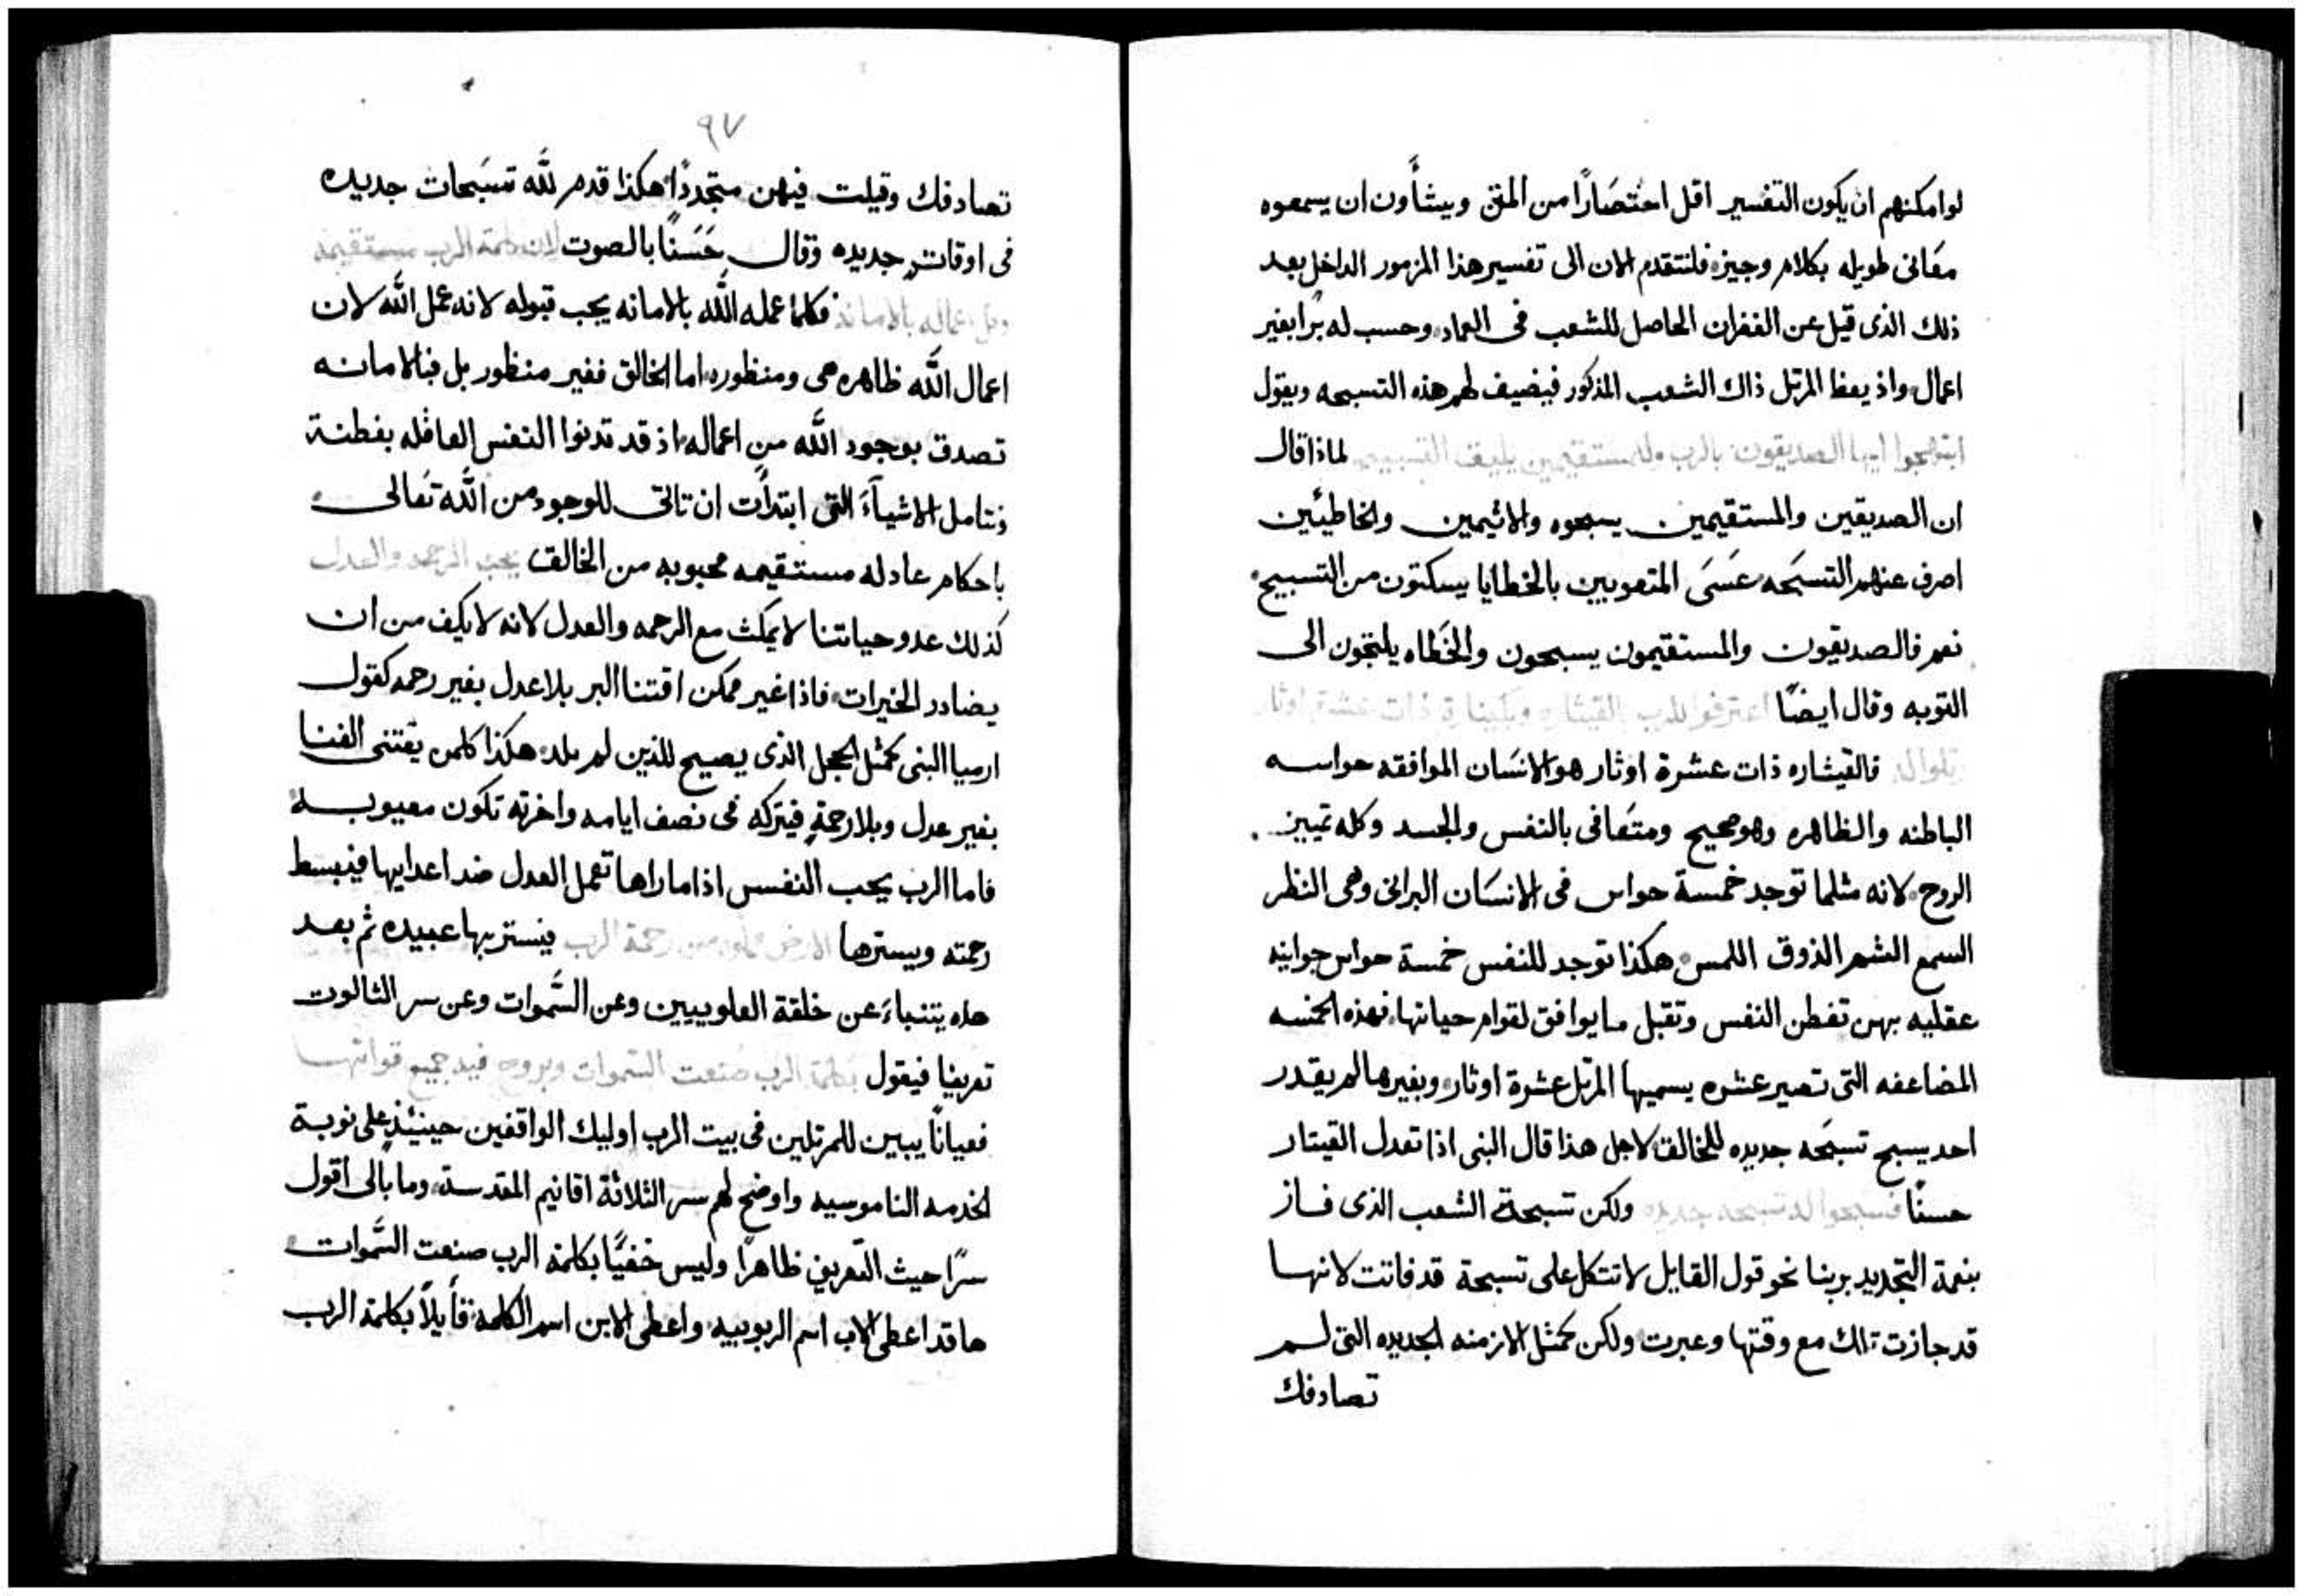 لو امكنهم ان يكون التفسير اقل اختصَارًا من المتن ويشأون ان يسمعوه
معَانى طويله بكلام وجيز، فلنتقدم الان الى تفسير هذا المزمور الداخل بعد
ذلك الذى قيل عن الغفران الحاصل للشعب فى العماد، وحسب له برًا بغير
اعمال، واذ يعظ المرتل ذاك الشعب المذكور فيضيف لهم هذه التسبحه ويقول
ابتهجوا ايها الصديقون بالرب وللمستقيمين يليق التسبيح لماذا قال
ان الصديقين والمستقيمين يسبحوه والاثيمين والخاطيئين
اصرف عنهم التسبَحه عسَىَ المتعوبين بالخطايا يسكتون من التسبيح
نعم فالصديقون والمستقيمون يسبحون والخَطاه يلتجون الى
التوبه وقال ايضًا اعترفوا للرب بالقيثاره وبكينارة ذات عشرة اوتار
رتلوا له، فالقيثاره ذات عشرة اوثار هو الانسَان الموافقه حواسه
الباطنه والظاهره وهو صحيح ومتعَافى بالنفس والجسد وكله تمييز
الروح، لانه مثلما توجد خمسة حواس فى الانسَان البرانى وهى النظر
السمع الشم الذوق اللمس، هكذا توجد للنفس خمسة حواس جوانيه
عقليه بهن تفطن النفس وتقبل ما يوافق لقوام حياتها، فهذه الخمسه
المضاعفه التى تصير عشره يسميها المرتل عشرة اوثار، وبغيرها لم يقدر
احد يسبح تسبَحه جديده للخالق لاجل هذا قال النبى اذا تعدل القيتار
حسنًا فسبحوا له تسبحه جديده ولكن تسبحة الشعب الذى فاز
بنعمة التجديد بربنا نحو قول القايل لا تتكل على تسبحة قد فاتت لانها
قد جازت تلك مع وقتها وعبرت ولكن كمثل الازمنه الجديده التى لم
تصادفك
٩٧
تصادفك وقيلت فيهن متجددًا، هكذا قدم للّه تسبَحات جديده
فى اوقاتٍ جديده وقال حَسَنًا بالصوت لان كلمة الرب مستقيمه
وكل اعماله بالامانه فكلما عمله اللّه بالامانه يجب قبوله لانه عمل اللّه لان
اعمال اللّه ظاهره هى ومنظوره، اما الخالق فغير منظور بل فبالامانه
تصدق بوجود اللّه من اعماله، اذ قد تدنوا النفس العاقله بفطنة
نتامل الاشيآءَ التى ابتدأت ان تاتى للوجود من اللّه تعَالى
باحكام عادله مستقيمه محبوبه من الخالق يحب الرحمه والعدل
كذلك عدو حياتنا لا يمكث مع الرحمه والعدل لانه لا يكف من ان
يضادد الخيرات، فاذا غير ممكن اقتنا البر بلا عدل بغير رحمه كقول
ارميا النبى كمثل الحجل الذى يصيح للذين لم يلد، هكذا كلمن يقتنى الغنا
بغير عدل وبلا رحمةٍ فيتركه فى نصف ايامه واخرته تكون معيوبه
فاما الرب يحب النفس اذا ما راها تعمل العدل ضد اعدايها فيبسط
رحمته ويسترها الارض مملوه من رحمة الرب فيستر بها عبيده ثم بعد
هذه يتنباءَ عن خلقة العلويين وعن السَّموات وعن سر الثالوث
تعريفًا فيقول بكلمة الرب صُنعت السَّموات وبروح فيه جميع قواتها
فعيانًا يبين للمرتلين فى بيت الرب اوليك الواقفين حينيئذٍ على نوبة
الخدمه الناموسيه واوضح لهم سر الثلاثة اقانيم المقدسة، وما بالى أقول
سرًا حيث التعريف ظاهرًا وليس خفيًا بكلمة الرب صنعت السَّموات
ها قد اعطى الاب اسم الربوبيه، واعطى الابن اسم الكلمة، قأيلًا بكلمة الرب